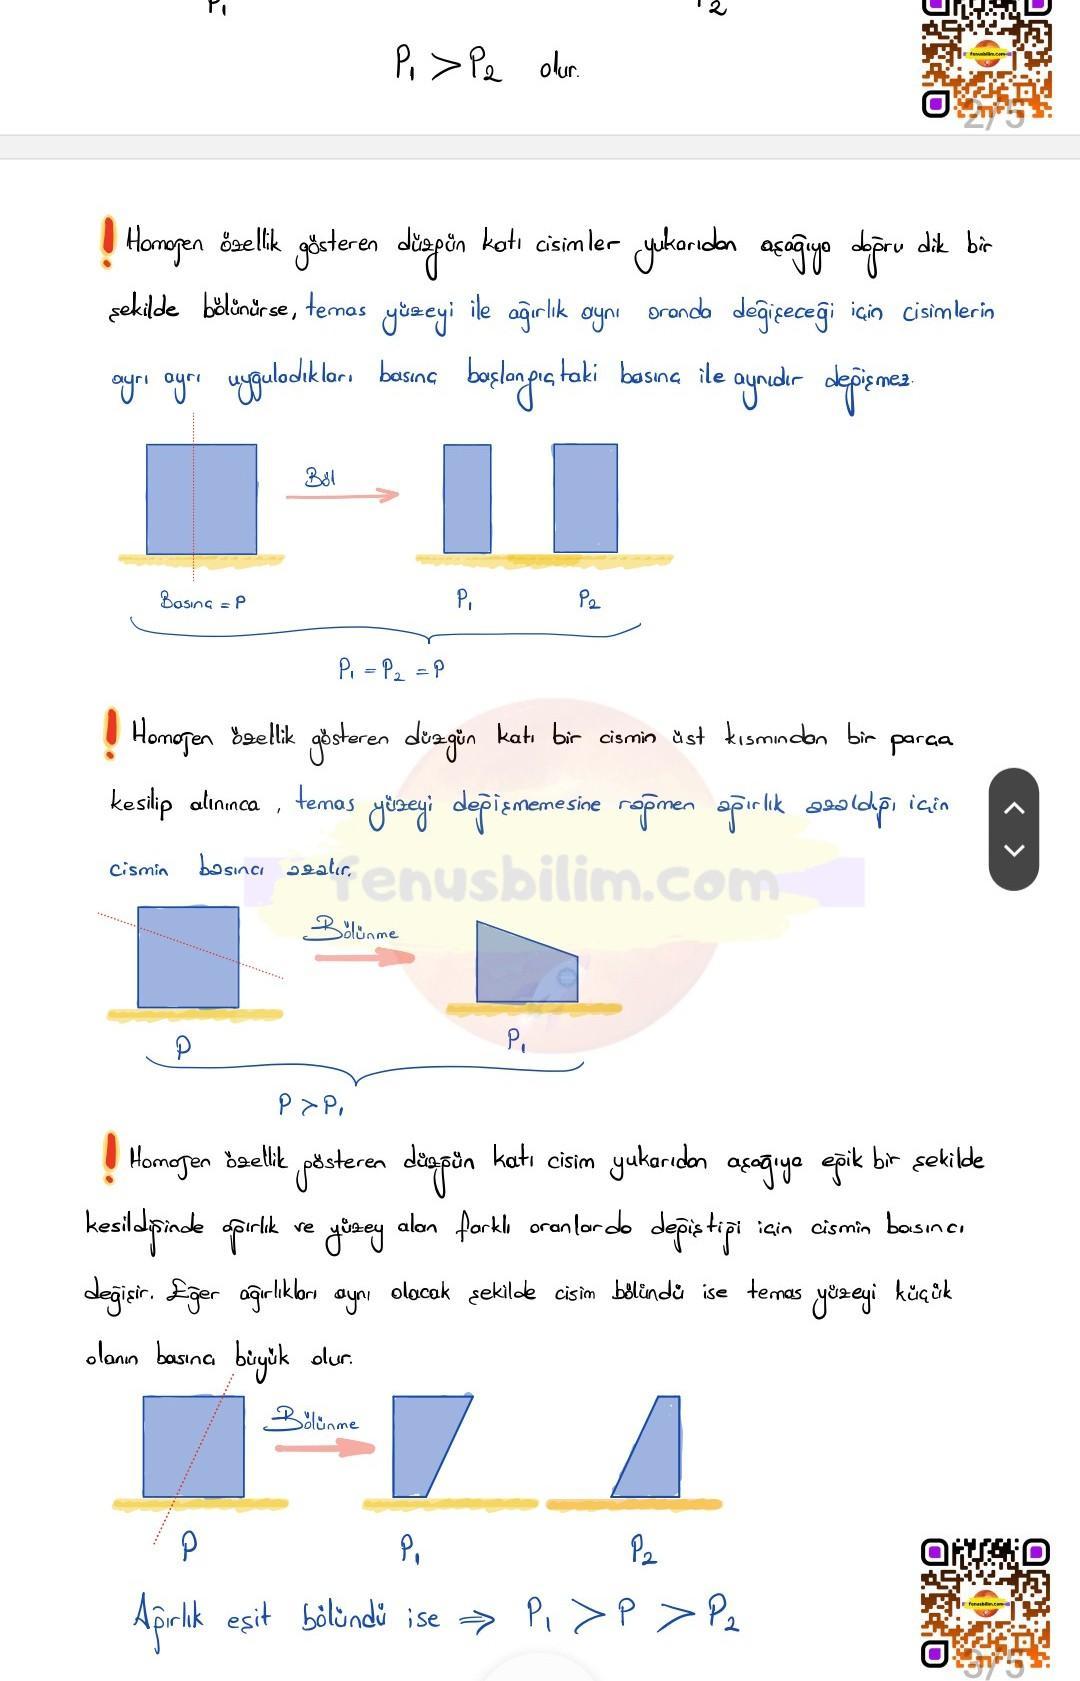 P₁ P₂
P₁ > P₂ olur.
fenusbilim.com
2/5
! Homojen özellik gösteren düzgün katı cisimler yukarıdan aşağıya doğru dik bir
şekilde bölünürse, temas yüzeyi ile ağırlık aynı oranda değişeceği için cisimlerin
ayrı ayrı uyguladıkları basınç başlangıçtaki basınç ile aynıdır değişmez.
Böl
Basınç = P P₁ P₂
P₁ = P₂ = P
! Homojen özellik gösteren düzgün katı bir cismin üst kısmından bir parça
kesilip alınınca, temas yüzeyi değişmemesine rağmen ağırlık azaldığı için
cismin basıncı azalır.
fenusbilim.com
Bölünme
P P₁
P > P₁
! Homojen özellik gösteren düzgün katı cisim yukarıdan aşağıya eğik bir şekilde
kesildiğinde ağırlık ve yüzey alan farklı oranlarda değiştiği için cismin basıncı
değişir. Eğer ağırlıkları aynı olacak şekilde cisim bölündü ise temas yüzeyi küçük
olanın basıncı büyük olur.
Bölünme
P P₁ P₂
Ağırlık eşit bölündü ise ⇒ P₁ > P > P₂
fenusbilim.com
3/5